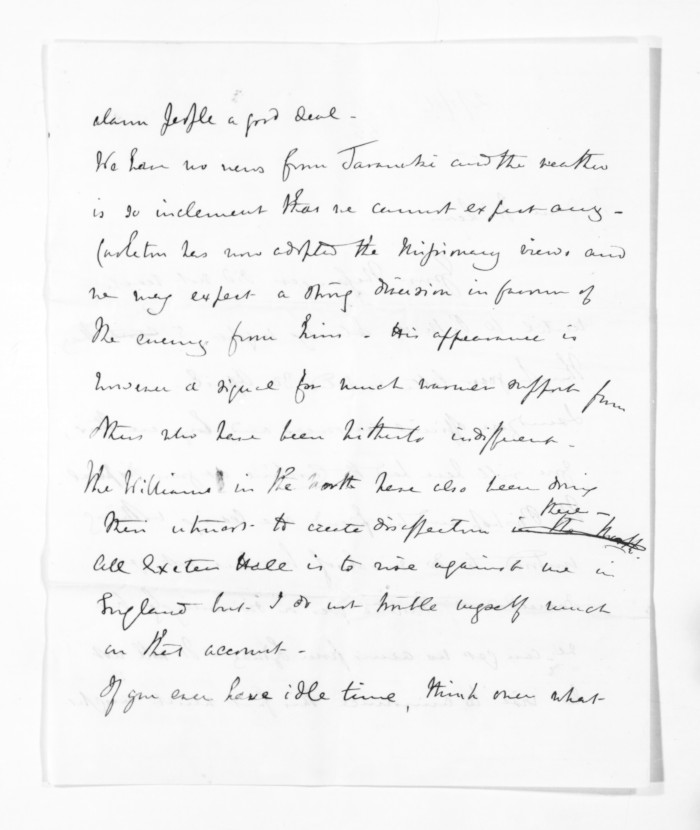 alarm people a good deal -
We have no news from Taranaki and the weather
is so inclement that we cannot expect any -
Carleton has now adopted the Missionary views and
we may expect a strong diversion in favour of
the enemy from him - His appearance is
however a signal for much warmer support from
others who have been hitherto indifferent -
The Williams in the North have also been doing
their utmost to create disaffection there - in the North.
All Exeter Hall is to rise against me in
England but I do not trouble myself much
on that account -
If you ever have idle time, think over what